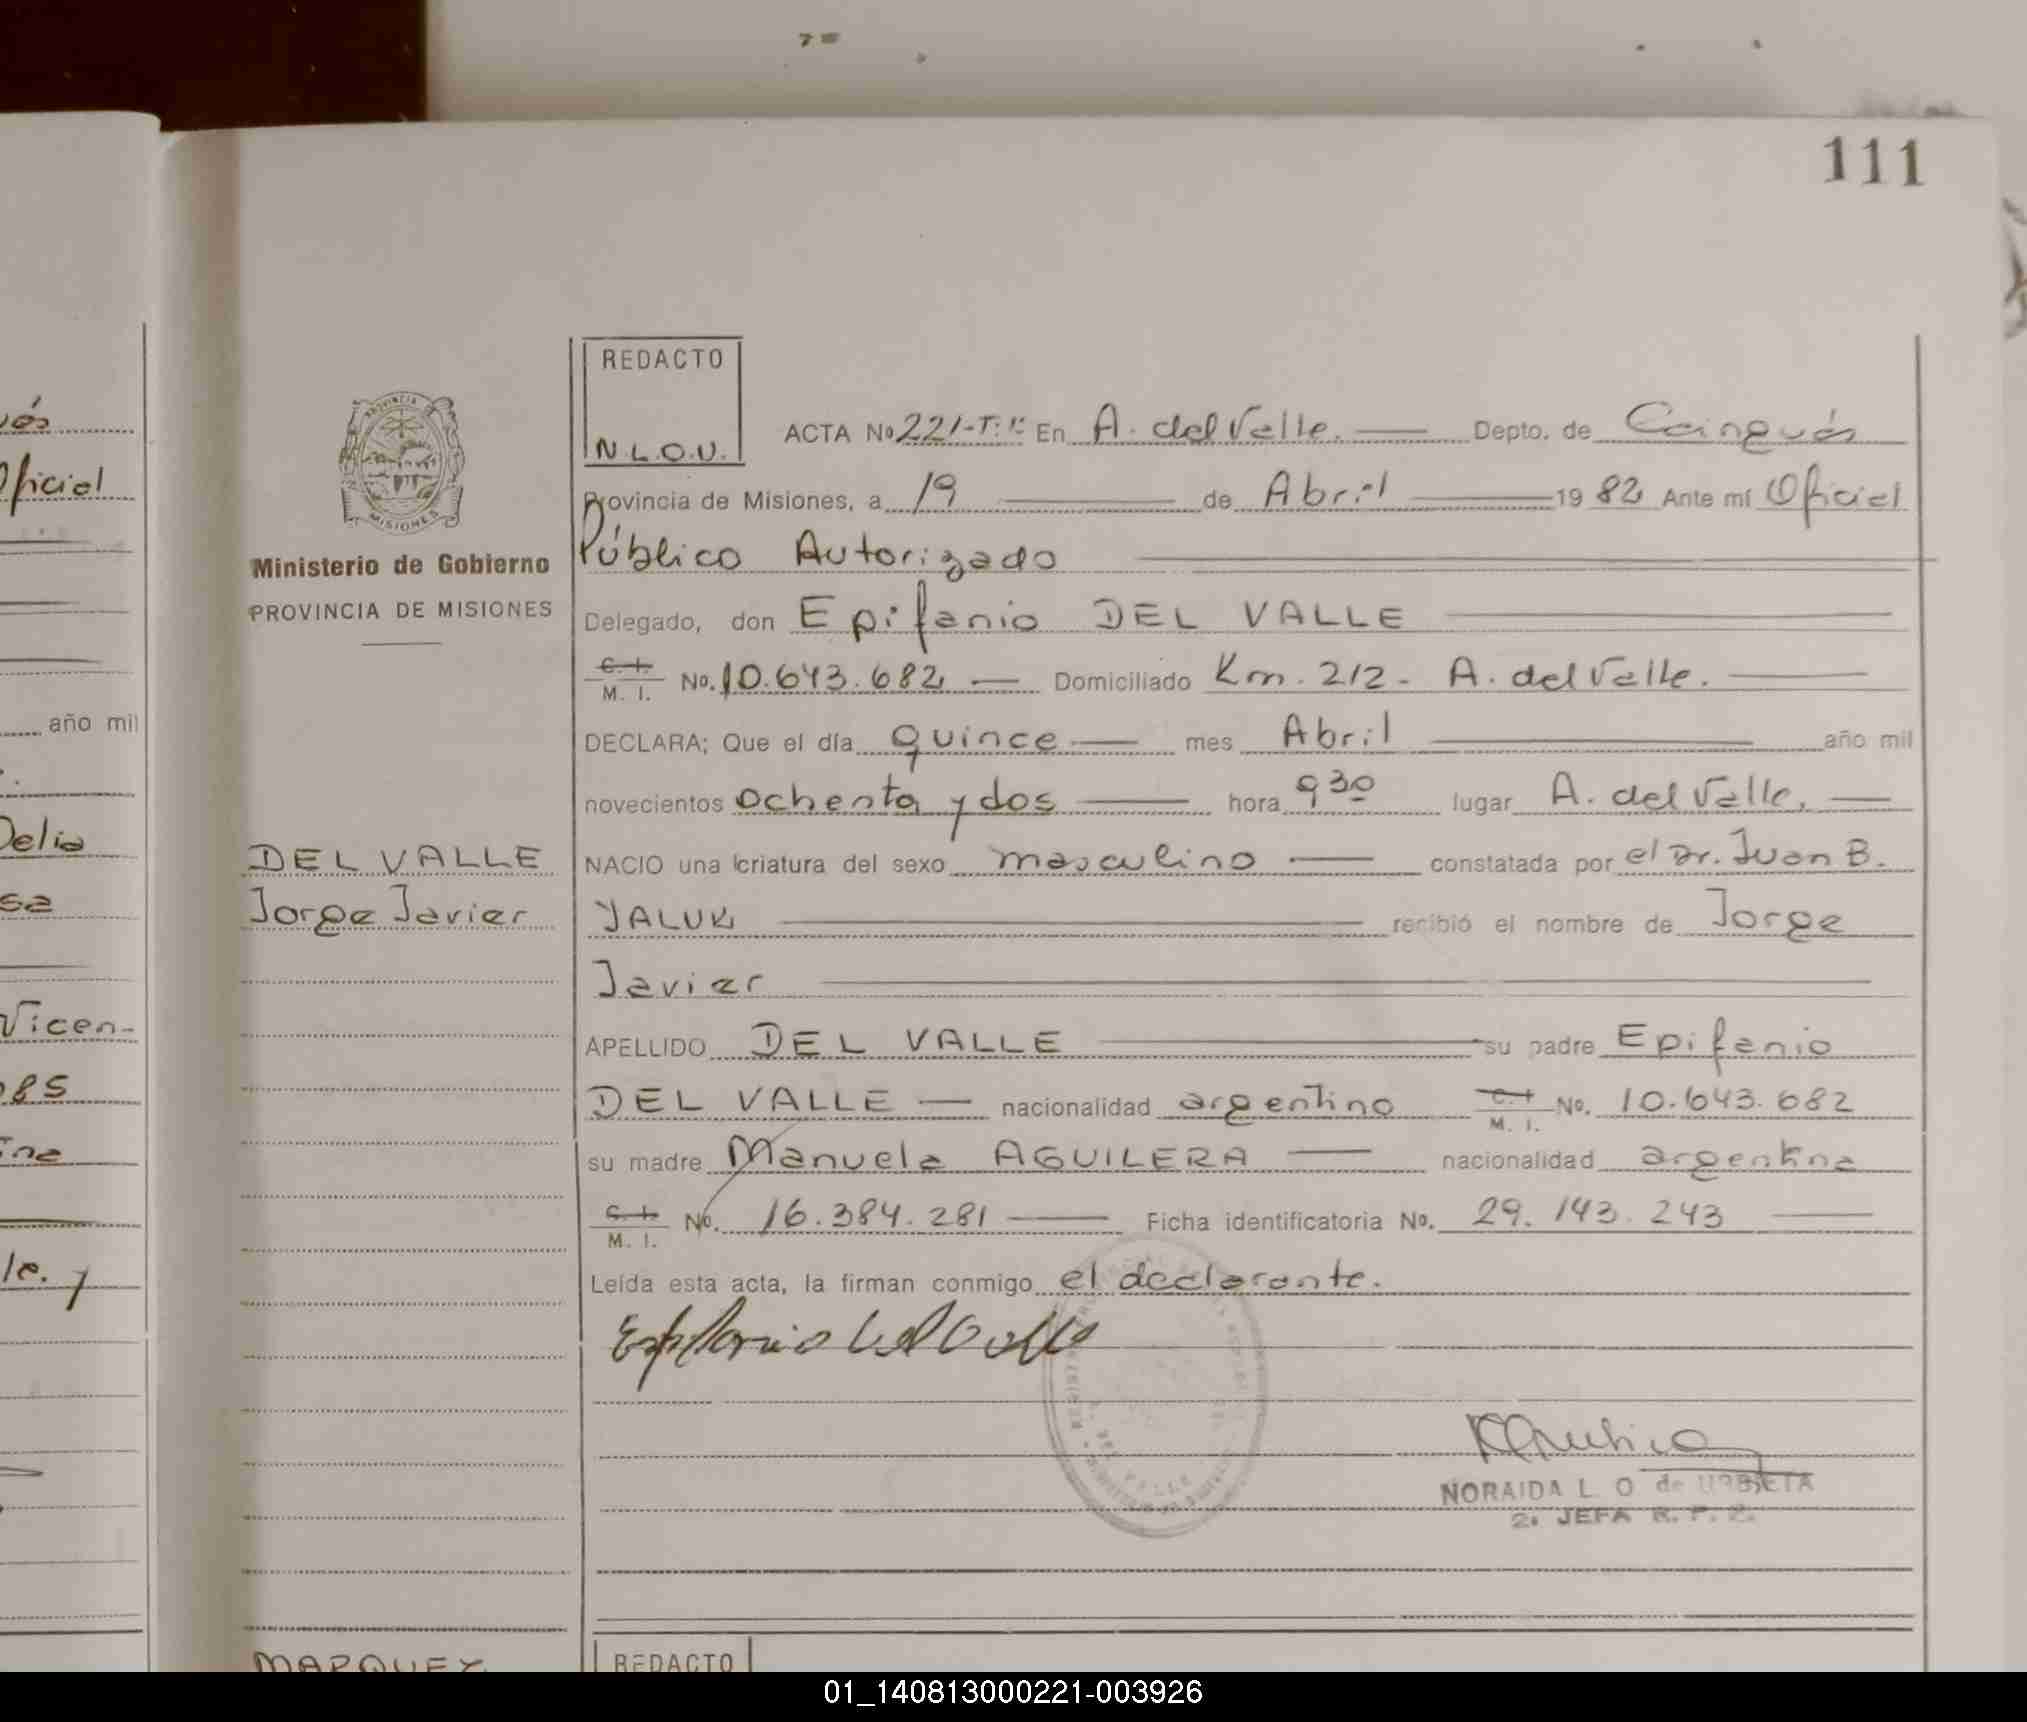 111
REDACTO
N.L.O.U.
PROVINCIA
MISIONES
Ministerio de Gobierno
PROVINCIA DE MISIONES
DEL VALLE
Jorge Javier
ACTA No 221-T:I: En A. del Valle. Depto. de Cainguás
Provincia de Misiones, a 19 de Abril 1982 Ante mí Oficial
Público Autorizado
Delegado, don Epifanio DEL VALLE
C. I. M. I. No. 10.643.682 Domiciliado Km. 212 - A. del Valle.
DECLARA; Que el día quince mes Abril año mil
novecientos ochenta y dos hora 9 30 lugar A. del Valle.
NACIO una criatura del sexo masculino constatada por el Dr. Juan B.
YALUK recibió el nombre de Jorge
Javier
APELLIDO DEL VALLE su padre Epifanio
DEL VALLE nacionalidad argentino C. I. M. I. No. 10.643.682
su madre Manuela AGUILERA nacionalidad argentina
C. I. M. I. No. 16.384.281 Ficha identificatoria No. 29.143.243
Leída esta acta, la firman conmigo el declarante.
Epifanio del Valle
NORAIDA L. O de URBIETA
2. JEFA R. P.
MARQUEZ
REDACTO
Oficial
año mil
Delia
Vicen-
085
01_140813000221-003926